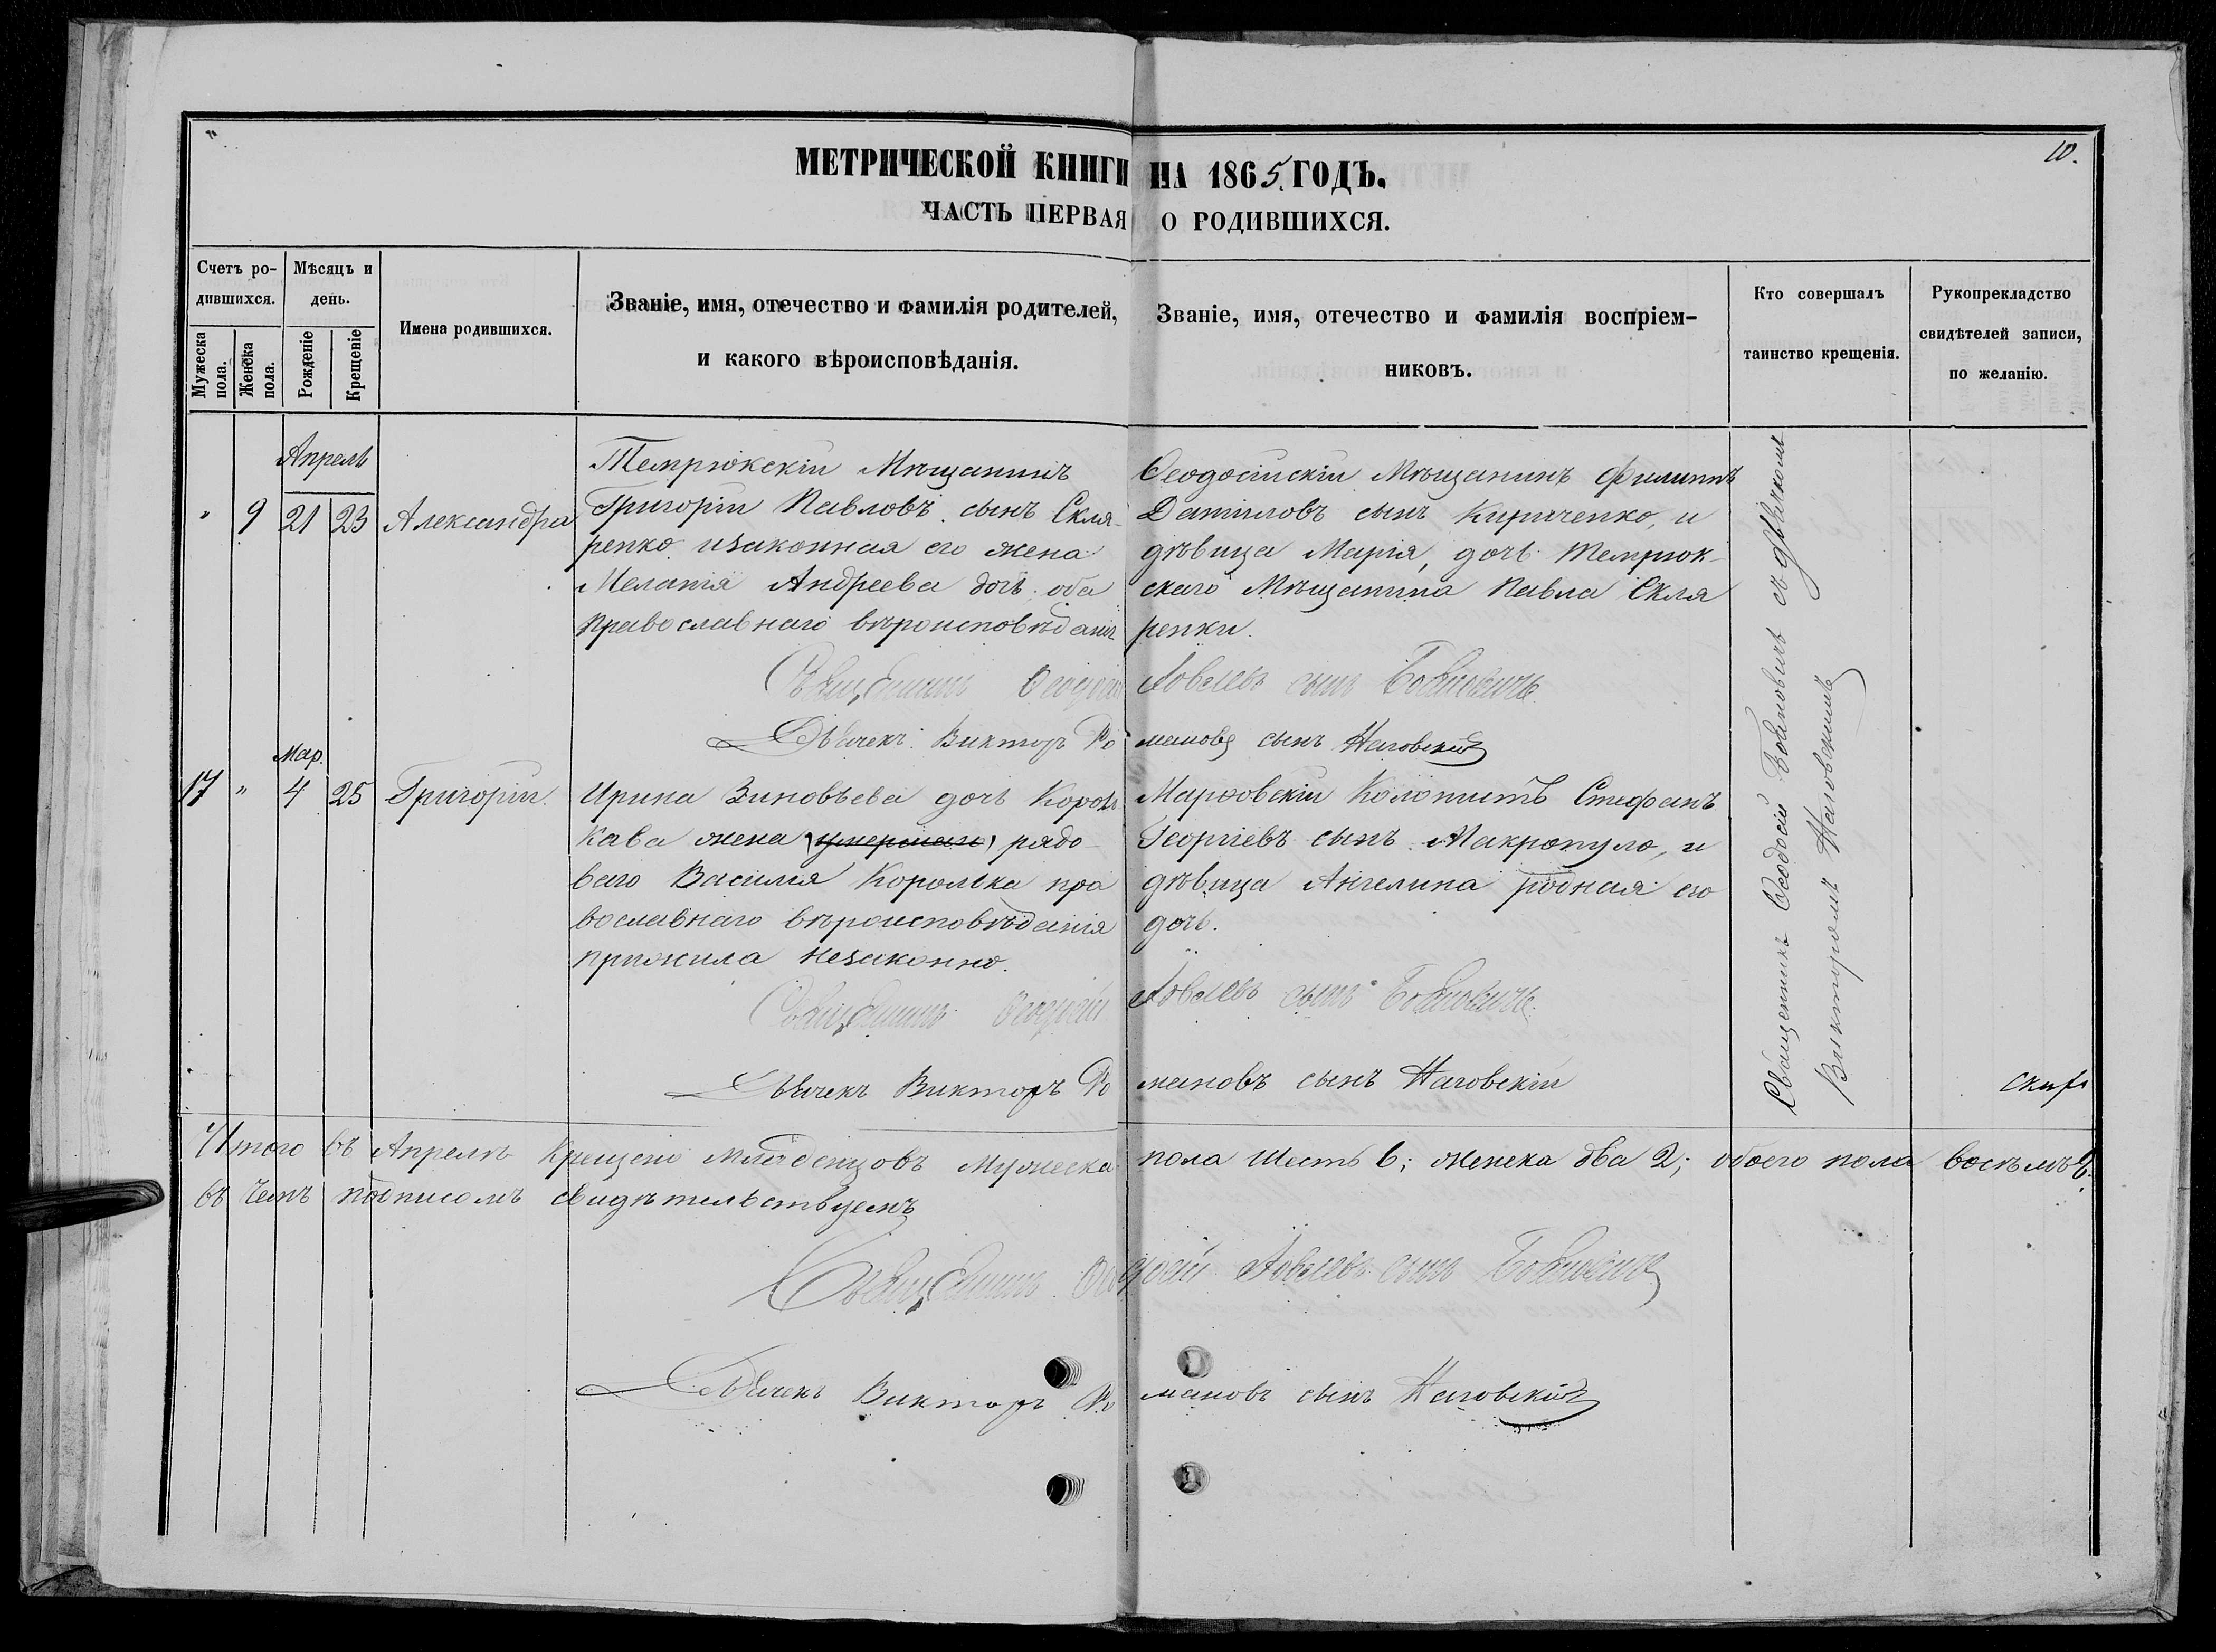 10.
МЕТРИЧЕСКОЙ КНИГИ НА 1865 ГОДЪ.
ЧАСТЬ ПЕРВАЯ О РОДИВШИХСЯ.
Счетъ ро-
дившихся.
Мужеска
пола.
Женска
пола.
Мѣсяцъ и
день.
Рожденіе
Крещеніе
Имена родившихся.
Званіе, имя, отечество и фамилія родителей,
и какого вѣроисповѣданія.
Званіе, имя, отечество и фамилія воспріем-
никовъ.
Кто совершалъ
таинство крещенія.
Рукоприкладство
свидѣтелей записи,
по желанію.
Апрель
" 9 21 23 Александра
Темрюкскій Мѣщанинъ
Григорій Павловъ сынъ Скля-
ренко изаконная его жена
Меланія Андреева дочь оба
православнаго вѣроисповѣданія
Ѳеодосійскій Мѣщанинъ Филиппъ
Даниловъ сынъ Кириченко, и
дѣвица Марія, дочь Темрюк-
скаго Мѣщанина Павла Скля
ренки.
Священникъ Ѳеодосій Іовлевъ сынъ
Дьячекъ Викторъ Романовъ сынъ Наговскій
Мар.
17 " 4 25 Григорій.
Ирина Зиновьева дочь Король
кава жена (умершаго) рядо-
ваго Василія Королька пра
вославнаго вѣроисповѣданія
прижила незаконно.
Маріовскій Колонистъ Стефанъ
Георгіевъ сынъ Макропуло, и
дѣвица Ангелина родная его
дочь.
Священникъ Ѳеодосій Іовлевъ сынъ
Дьячекъ Викторъ Романовъ сынъ Наговскій
Священникъ Ѳеодосій съ дьячкомъ
Викторомъ Наговскимъ
Итого въ Апрелѣ Крещено младенцовъ мужеска пола шесть 6; женска два 2; обоего пола восѣмъ 8.
въ чемъ подписомъ свидѣтельствуемъ
Священникъ Ѳеодосій Іовлевъ сынъ
Дьячекъ Викторъ Романовъ сынъ Наговскій